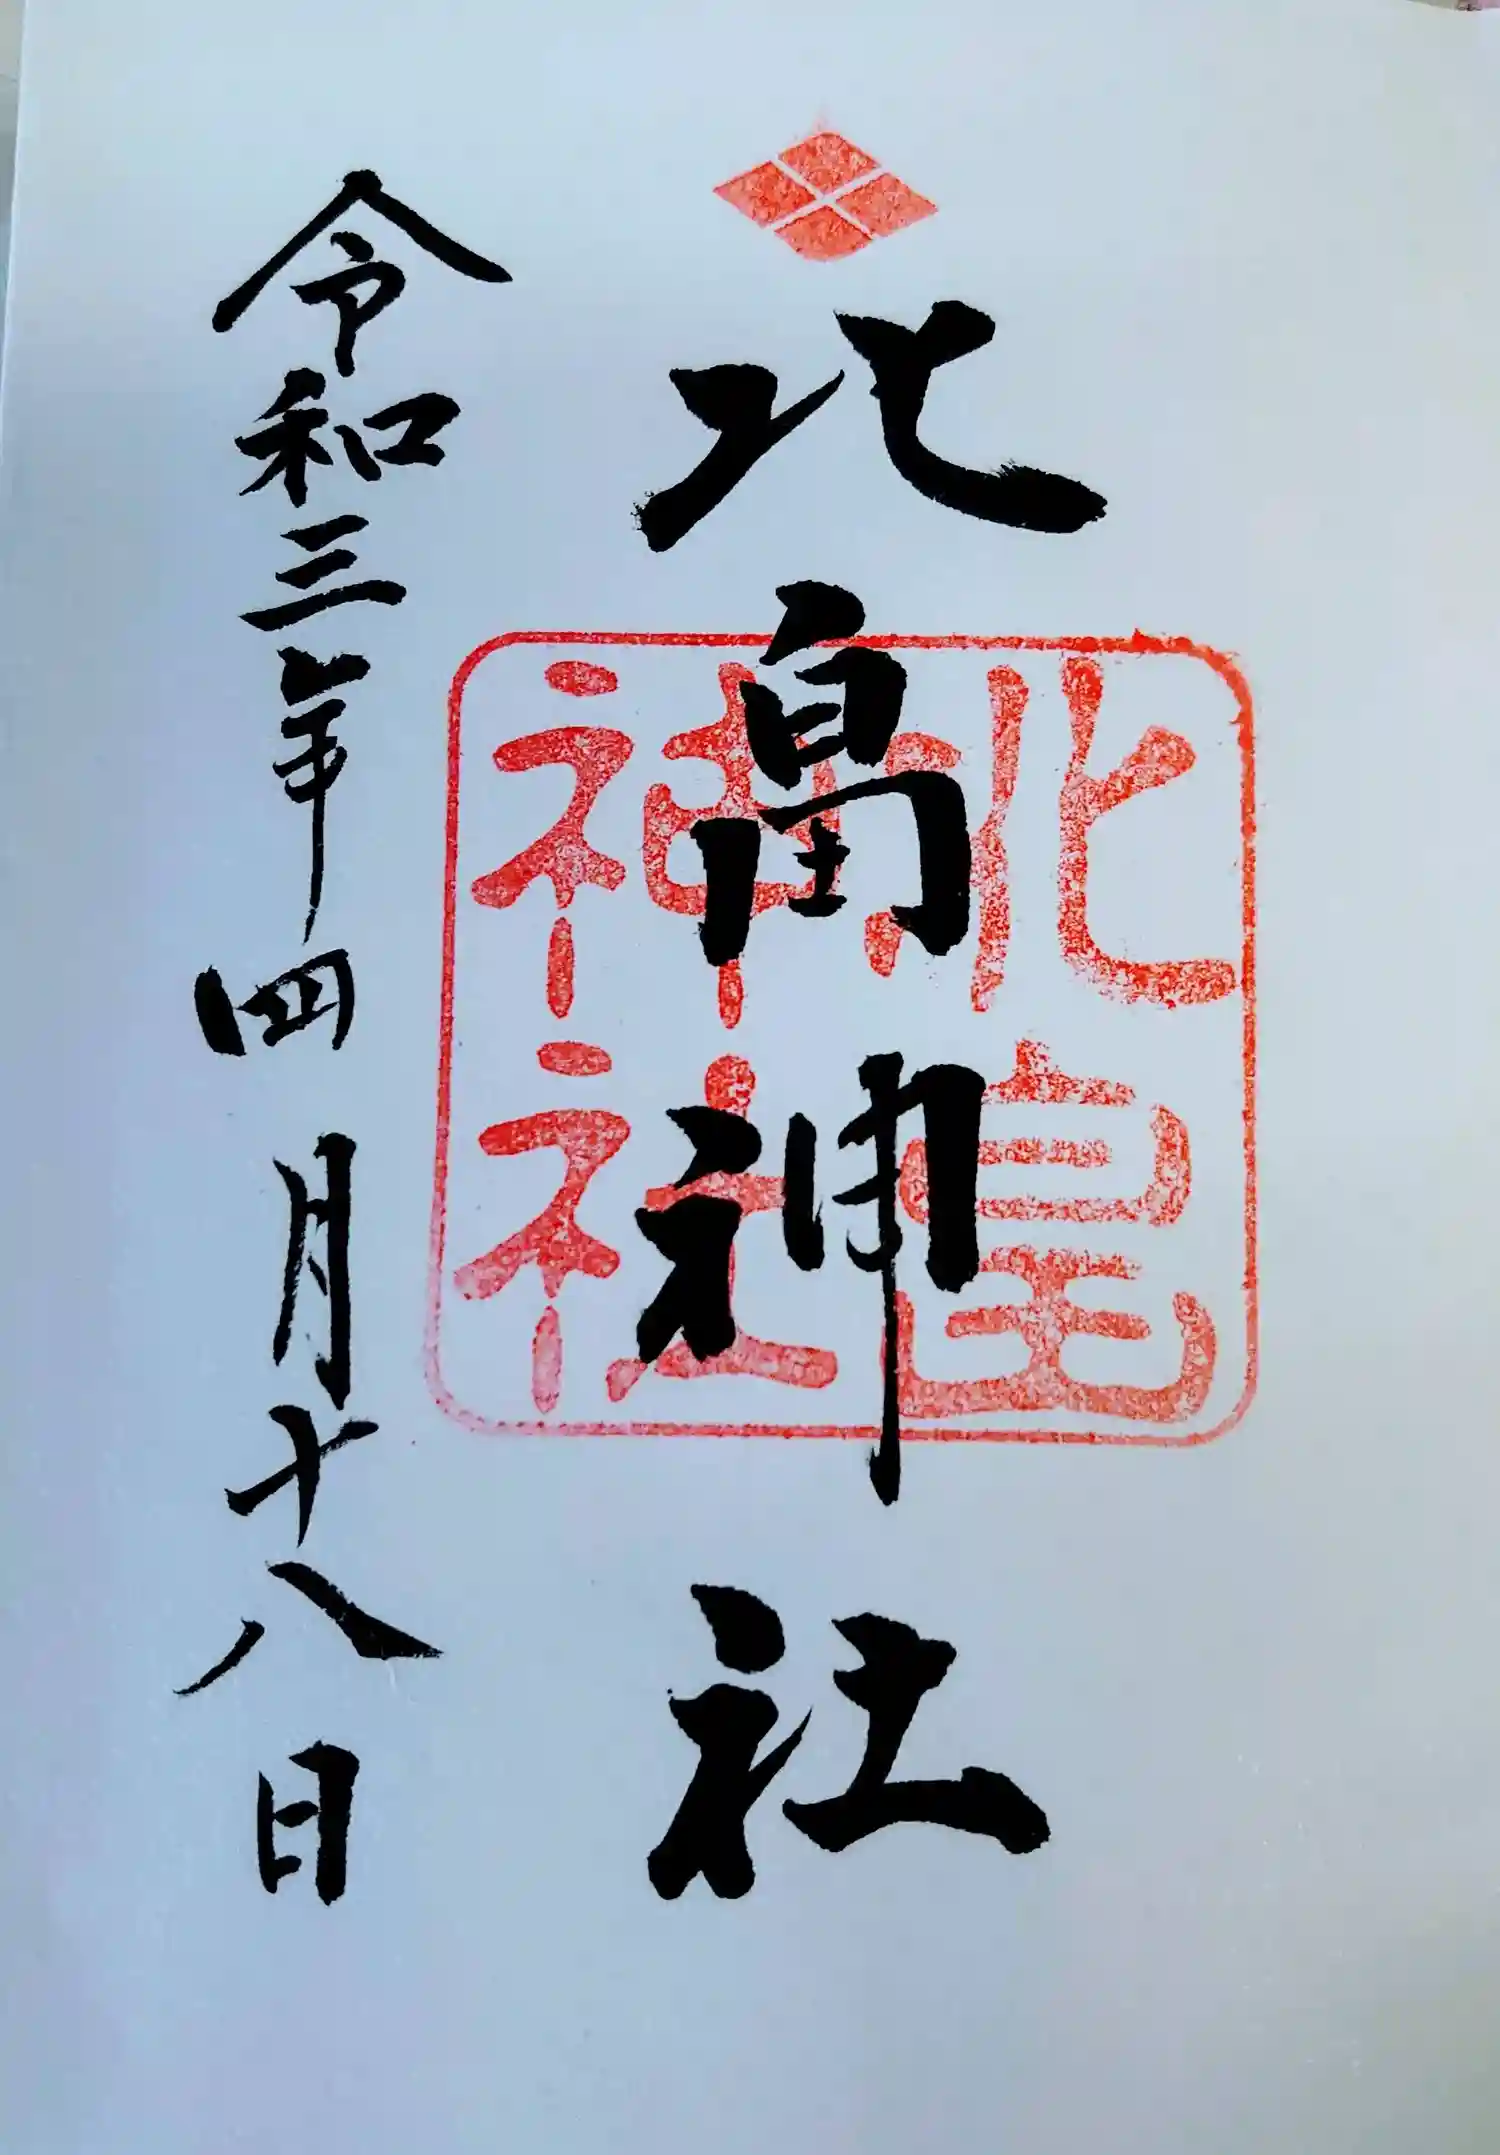 北畠神社
令和三年四月十八日
北畠
神社